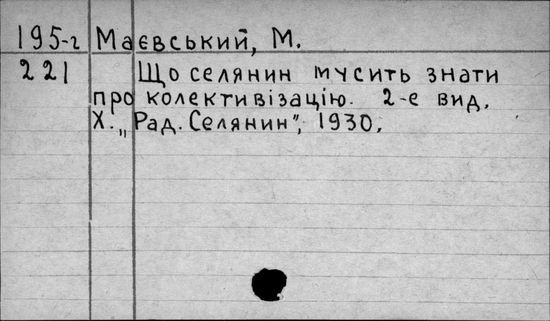 195-г Маєвський, М.
221 Що селянин мусить знати
про колективізацію. 2-е вид.
Х. „Рад. Селянин", 1930.